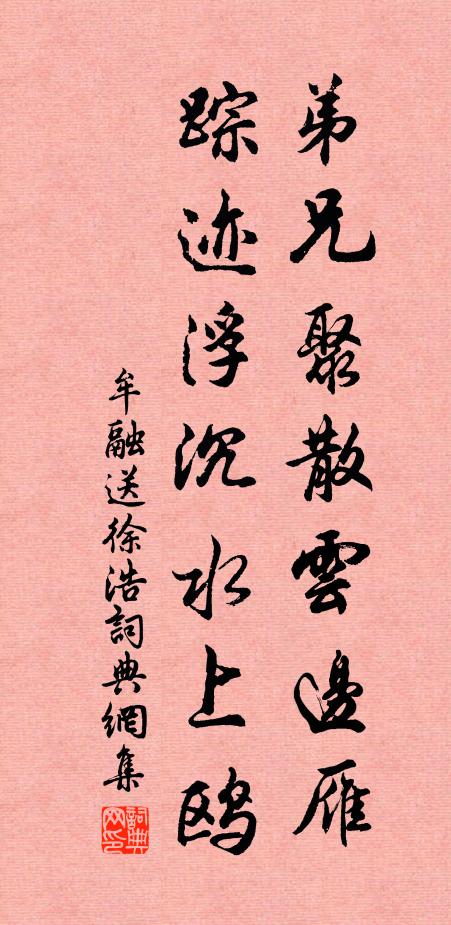 弟兄聚散雲邊雁
踪迹浮沉水上鸥
牟融送徐浩詞典網集
詞典网印